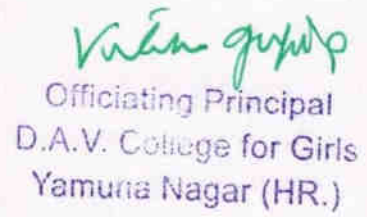 Officiating Principal
D.A.V. College for Girls
Yamuna Nagar (HR.)